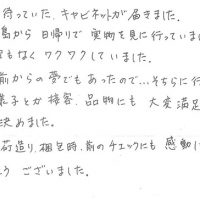 待っていた、キャビネットが届きました。
島から 日帰りで 実物を見に行っていまし
もなく ワクワクしていました。
前からの夢でもあったので…そちらに行
様子とか 接客、品物にも 大変満足
決めました。
荷造り、梱包時、前のチェックにも 感動
ございました。